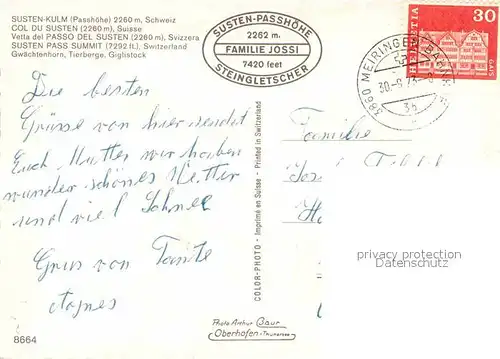 SUSTEN-KULM (Passhöhe) 2260 m, Schweiz
COL DU SUSTEN (2260 m), Suisse
Vetta del PASSO DEL SUSTEN (2260 m), Svizzera
SUSTEN PASS SUMMIT (7292 ft.), Switzerland
Gwächtenhorn, Tierberge, Giglistock
SUSTEN-PASSHÖHE
2262 m.
FAMILIE JOSSI
7420 feet
STEINGLETSCHER
30
HELVETIA
GAIS
3860 MEIRINGEN
Die besten
Grüsse von hier sendet
Euch Mutter wir haben
wunder schönes Wetter
und viel Schnee
Grus von Tante
Agnes
Familie
COLOR-PHOTO - Imprimé en Suisse - Printed in Switzerland
privacy protection
Datenschutz
Photo Arthur Baur
Oberhofen-Thunersee
8664